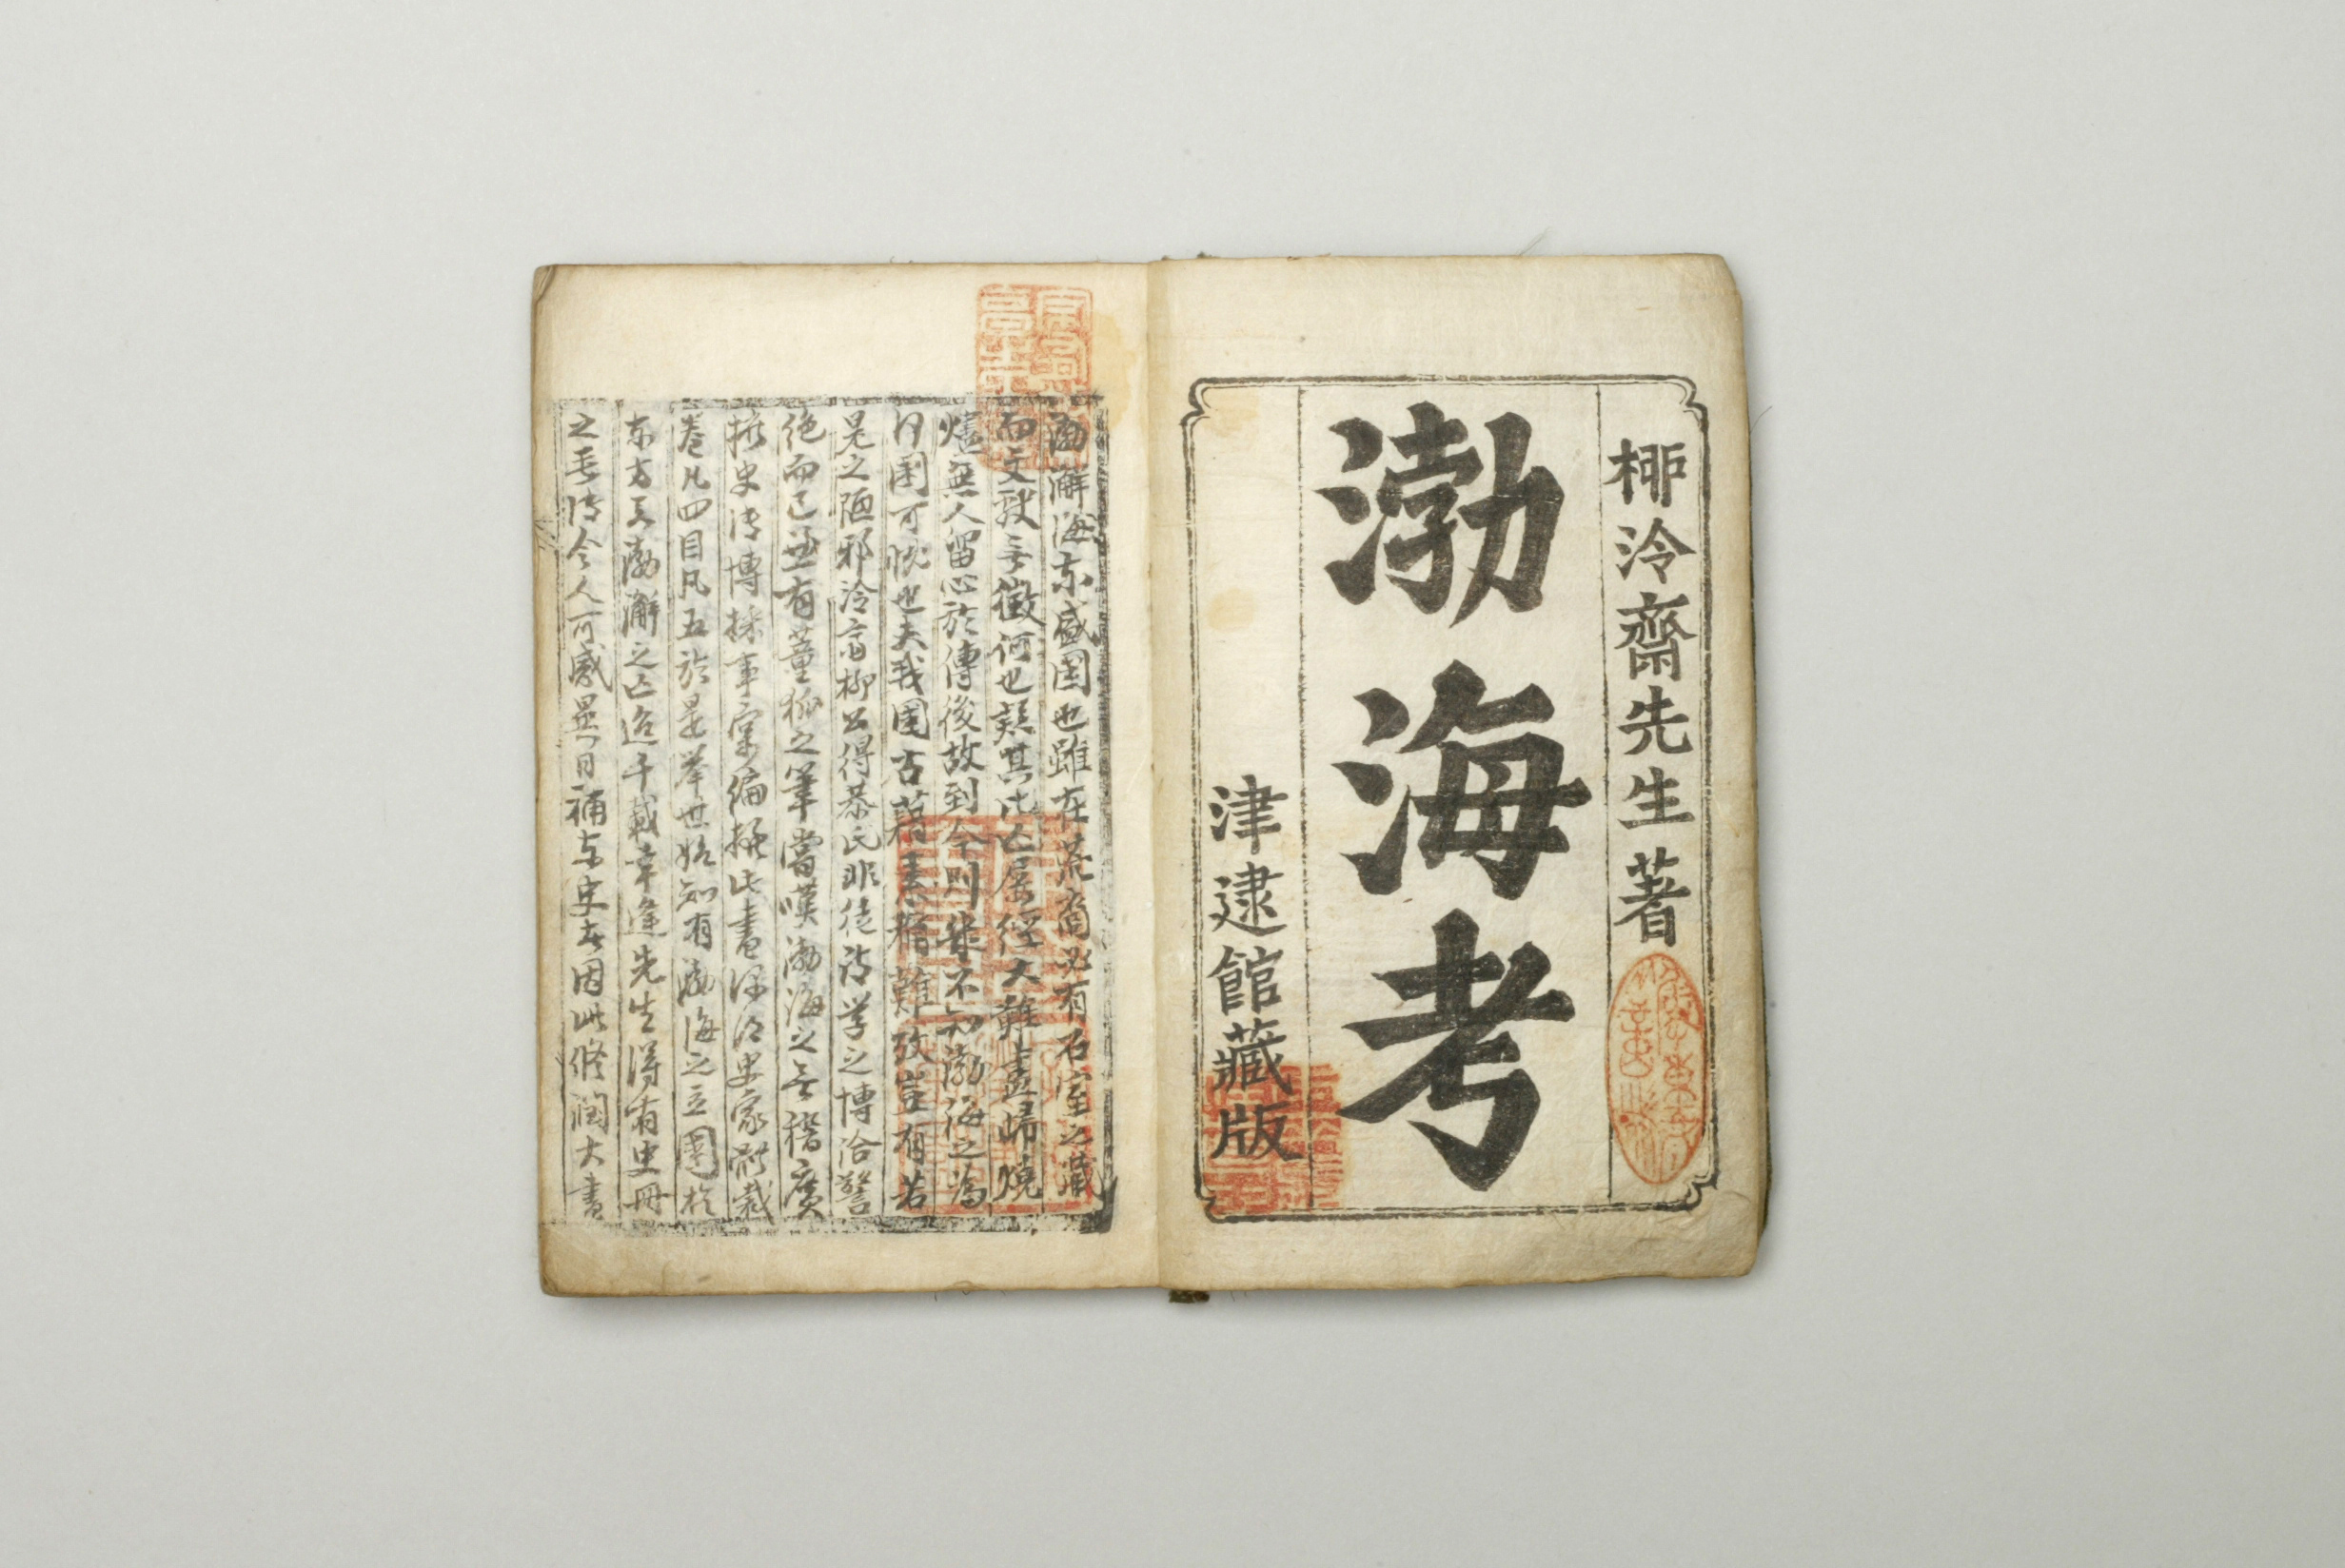 柳泠齋先生著
渤海考
津逮館藏版
渤澥海東盛國也雖在荒裔必有石室之藏
而文獻無徵何也疑其亡屢經大難盡歸燒
燼無人留心於傳後故到今則幷不知渤海之為
何國可恨也夫我國古蹟素稱難攷豈有若
是之陋邪泠齋柳公得恭氏非徒詩學之博洽警
絕而已並有董狐之筆嘗嘆渤海之無稽廣
摭史傳博採事實編摭此書深得史家裁
卷凡四目凡五於是舉世始知有渤海之立國於
東方矣渤澥之亡迨千載幸逢先生得有史冊
之垂後令人可感異日補東史者因此修潤大書